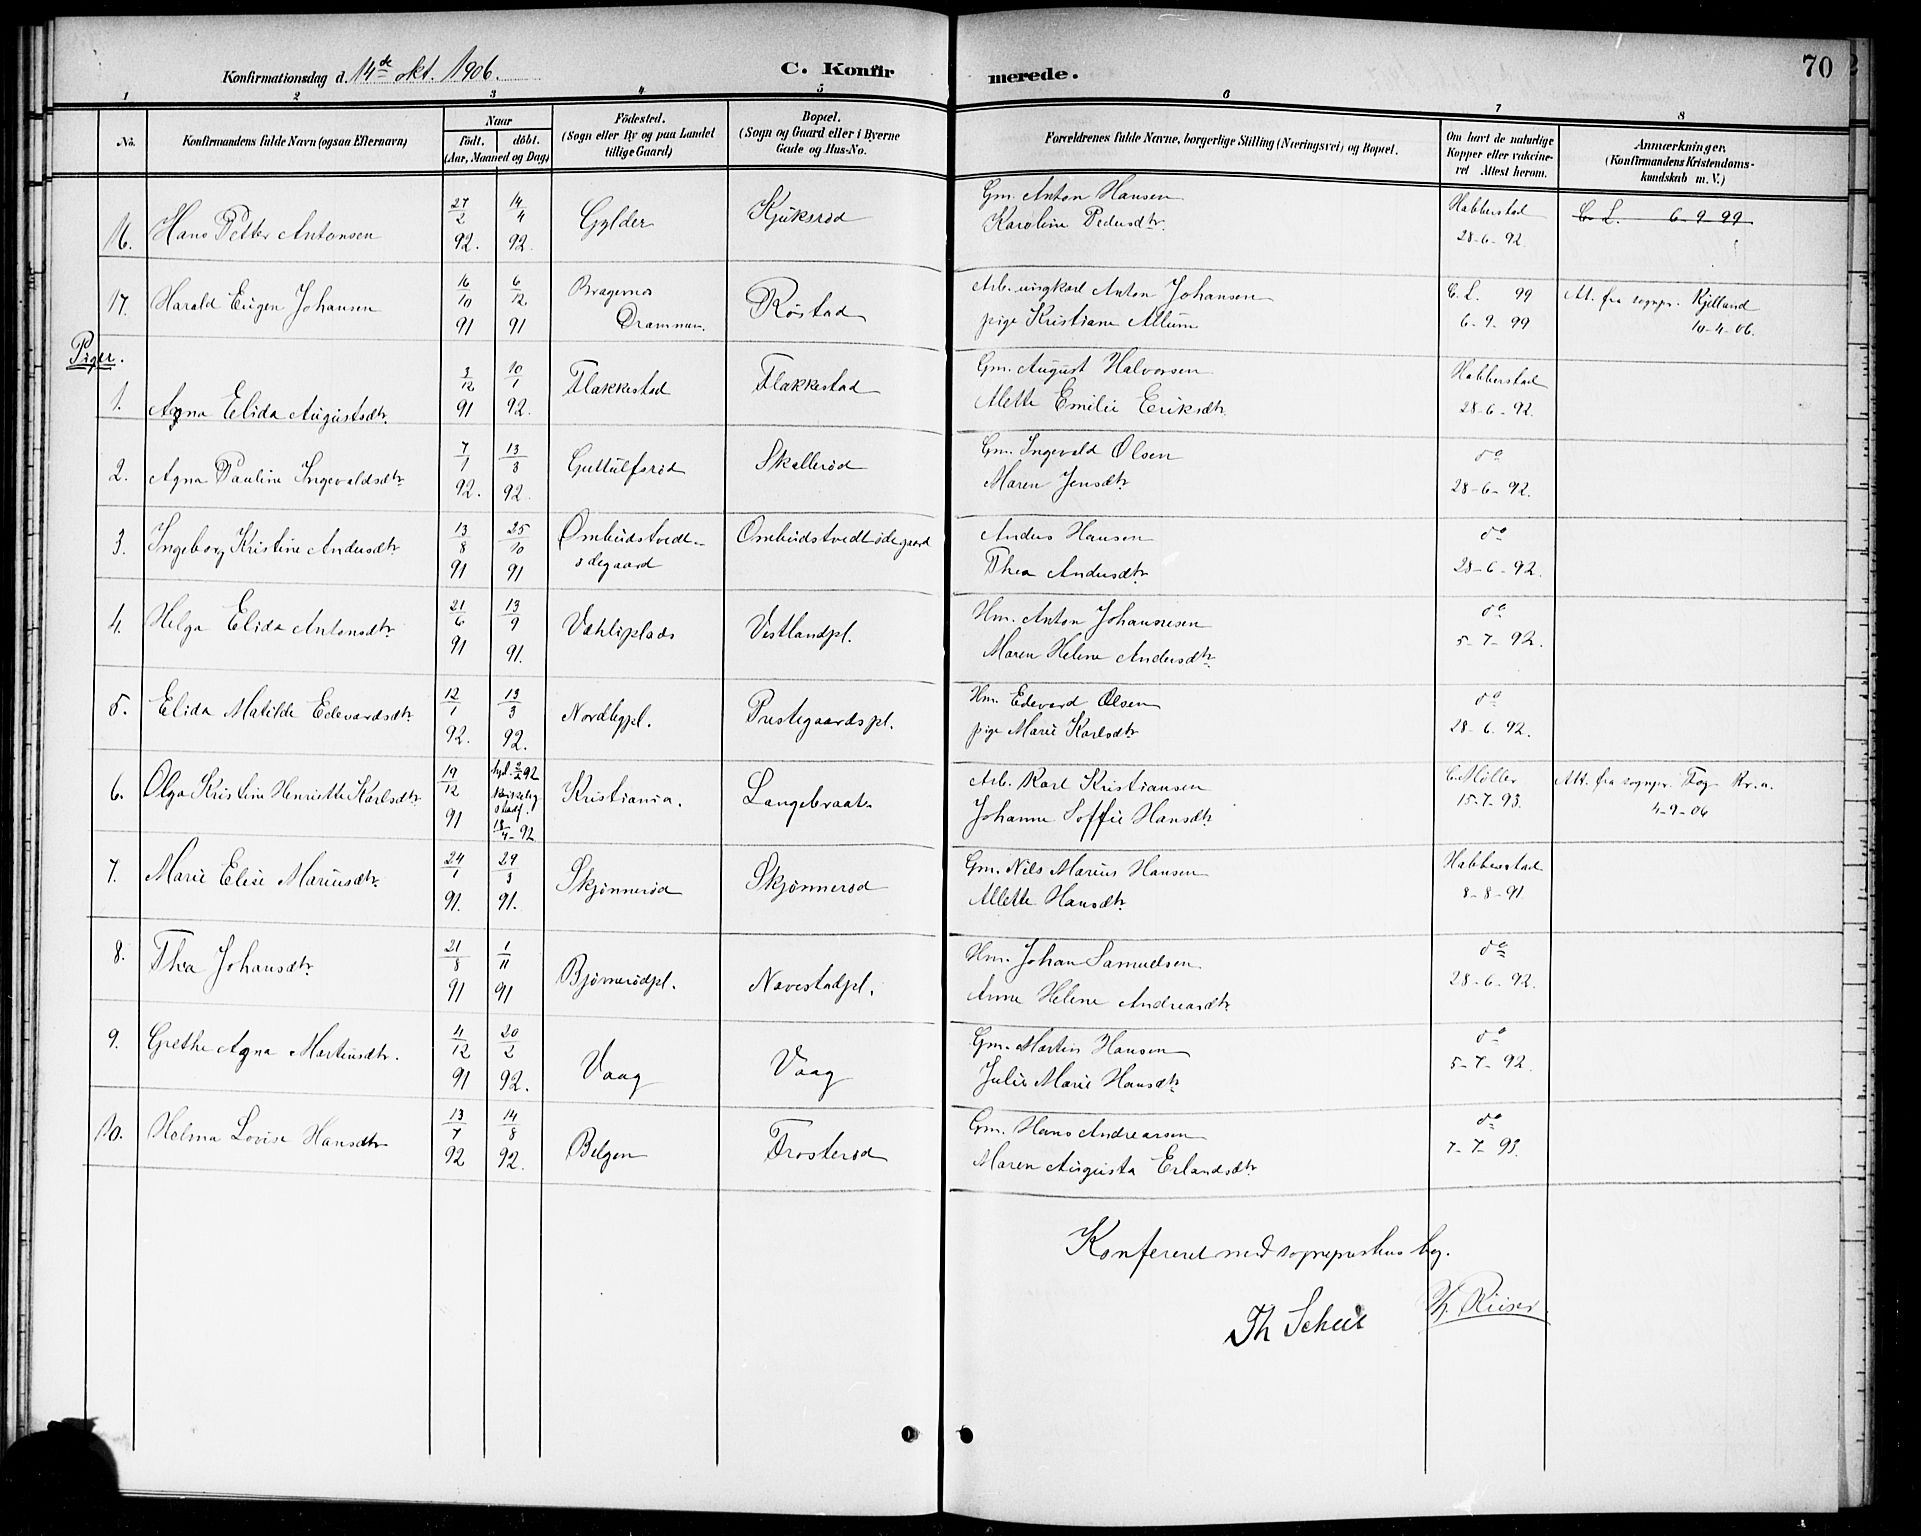 Konfirmationsdag d. 14de okt. 1906. C. Konfirmerede. 70
1 2 3 4 5 6 7 8
No. Konfirmandens fulde Navn (ogsaa Efternavn) Naar født. døbt. (Aar, Maaned og Dag) Fødested. (Sogn eller By og paa Landet tillige Gaard) Bopæl. (Sogn og Gaard eller i Byerne Gade og Hus-No. Forældrenes fulde Navne, borgerlige Stilling (Næringsvei) og Bopæl. Om havt de naturlige Kopper eller vakcineret Attest herom. Anmærkninger, (Konfirmandens Kristendomskundskab m. V.)
16. Hans Petter Antonsen 27/2 92. 14/4 92. Gylder Kjuksrød Gm. Anton Hansen Habberstad C. L. 6-9 99
Karoline Pedersdtr. 28-6-92.
17. Harald Eugen Johansen 16/10 91 6/12 91 Bragernes Drammen. Røstad Arb. ungkarl Anton Johansen C. L. 99 Att. fra sognpr. Kjelland
pige Kristiane Allum 6-9-99 10-4-06.
Piger.
1. Agna Elida Augustsdtr. 3/12 91 10/1 92. Flakkestad Flakkestad Gm. August Halvorsen Habberstad
Alette Emilie Eriksdtr. 28-6-92.
2. Agna Pauline Ingevaldsdtr. 7/1 92. 13/3 92. Guttulfsrød Skallerød Gm. Ingevald Olsen do
Maren Jensdtr. 28-6-92.
3. Ingeborg Kristine Andersdtr. 13/8 91 25/10 91 Ombudstvedt-ødegaard Ombudstvedtødegaard Anders Hansen do
Thea Andersdtr. 28-6-92.
4. Helga Elida Antonsdtr. 21/6 91 13/9 91. Vahliplads Vestlandpl. Hm. Anton Johannesen do
Maren Helene Andersdtr. 5-7-92.
5. Elida Matilde Edevardsdtr. 12/1 92. 13/3 92. Nordbypl. Prestegaardspl. Hm. Edevard Olsen do
pige Marie Karlsdtr. 28-6. 92.
6. Olga Kristine Henriette Karlsdtr. 19/12 91 2/2 92 13/4-92 Kristiania. Langebraaten Arb. Karl Kristiansen C. Møller Att. fra sognpr. Fog Kr.a.
Johanne Soffie Hansdtr. 15-7-93. 4-9-06
7. Marie Elise Mariusdtr. 24/1 91. 29/3 91. Skjønnerød Skjønnerød Gm. Nils Marius Hansen Habberstad
Allette Hansdtr. 8-8-91
8. Thea Johansdtr. 21/8 91 1/11 91 Bjørnerødpl. Navestadpl. Hm. Johan Samuelsen do
Anne Helene Andreasdtr. 28-6-92.
9. Grethe Agna Martinsdtr. 4/12 91 20/2 92. Vaag Vaag Gm. Martin Hansen do
Julie Marie Hansdtr. 5-7-92.
10. Helma Lovise Hansdtr. 13/7 92 14/8 92. Belgen Frosterød Gm. Hans Andreassen do
Maren Augusta Erlandsdtr. 7-7-93.
Konfereret med sogneprestens bog.
Th Scheel